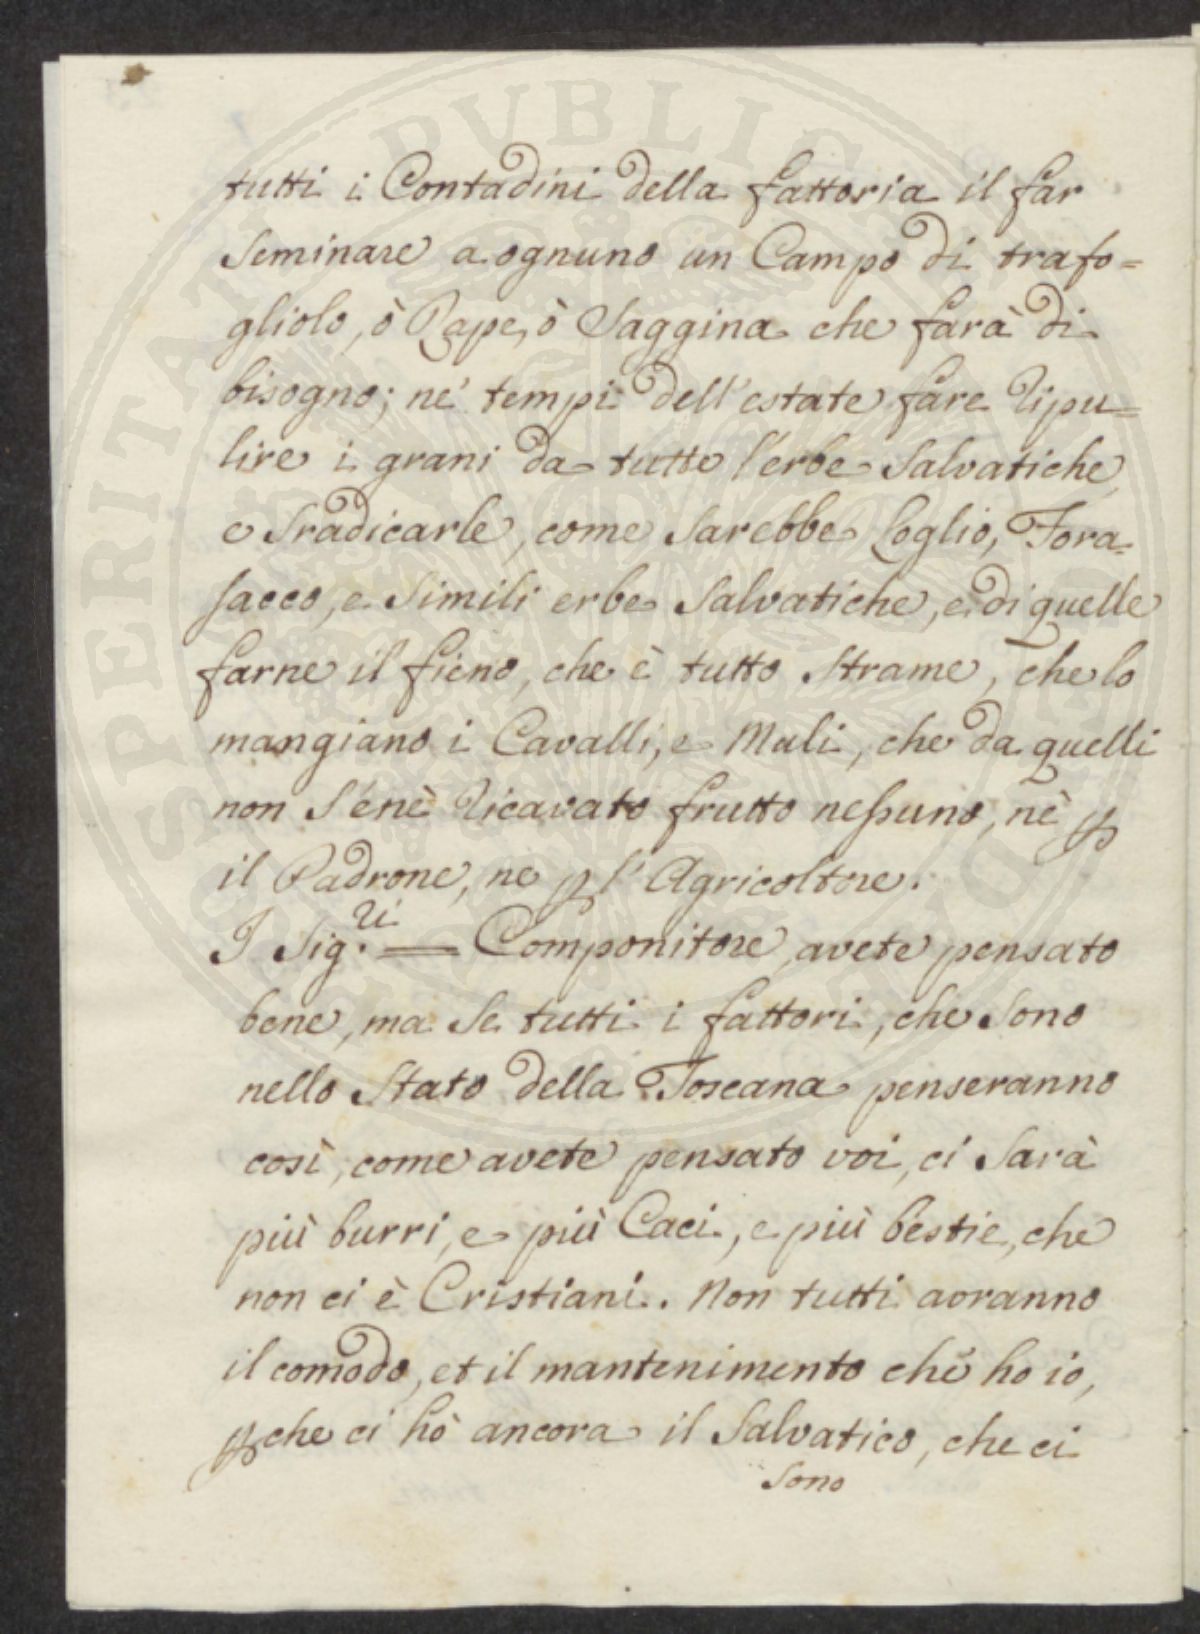 tutti i Contadini della fattoria il far
Seminare a ognuno un Campo di trafo=
gliolo, ò Rape, ò Saggina che farà di
bisogno; ne' tempi dell'estate fare ripu=
lire i grani da tutte l'erbe Salvatiche
e Sradicarle, come Sarebbe Loglio, Fora=
sacco, e Simili erbe Salvatiche, e di quelle
farne il fieno, che è tutto Strame, che lo
mangiano i Cavalli, e Muli, che da quelli
non S'enè ricavato frutto nessuno, nè ꝑ
il Padrone, ne ꝑ l'Agricoltore.
I Sig.ri = Componitore, avete pensato
bene, ma Se tutti i fattori, che Sono
nello Stato della Toscana penseranno
così, come avete pensato voi, ci Sarà
più burri, e più Caci, e più bestie, che
non ci è Cristiani. Non tutti avranno
il comodo, et il mantenimento che ho io,
ꝑche ci hò ancora il Salvatico, che ci
Sono
SPERITATI PUBLICAE